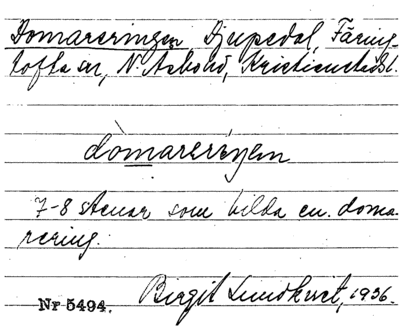 Domareringen, Djupedal, Färing-
tofta sn, N. Åsbohd, Kristianstads l.
dòmareriŋen
7-8 stenar som bilda en doma-
rering.
Birgit Lundkvist, 1936.
Nr 5494.